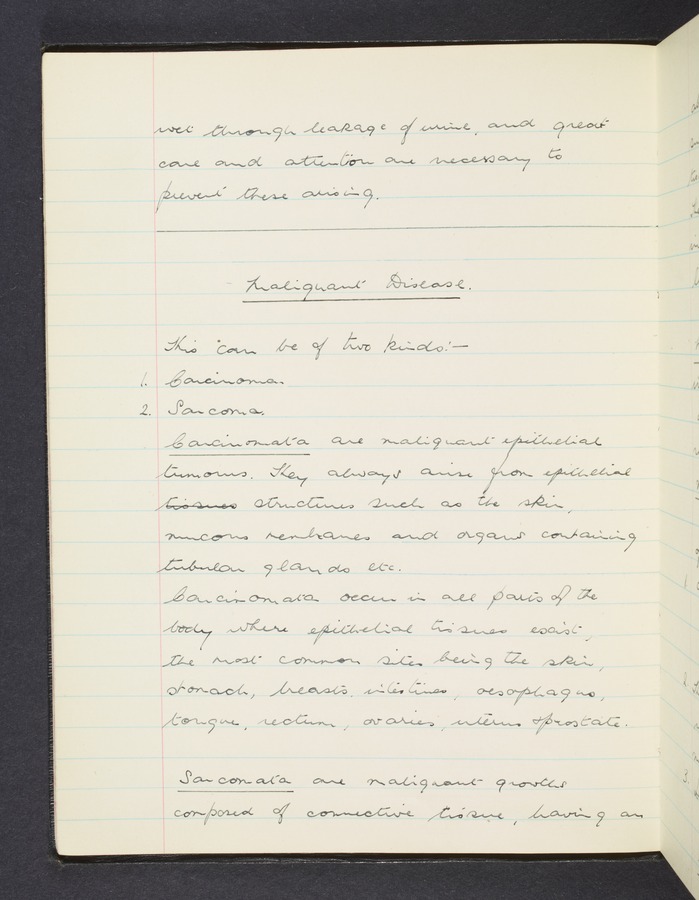 wet through leakage of urine, and great
care and attention are necessary to
prevent these arising.
Malignant Disease.
This can be of two kinds:—
1. Carcinoma.
2. Sarcoma.
Carcinomata are malignant epithelial
tumours. They always arise from epithelial
tissues structures such as the skin,
mucous membranes and organs containing
tubular glands etc.
Carcinomata occur in all parts of the
body where epithelial tissues exist,
the most common sites being the skin,
stomach, breasts, intestines, oesophagus,
tongue, rectum, ovaries, uterus & prostate.
Sarcomata are malignant growths
composed of connective tissue, having an